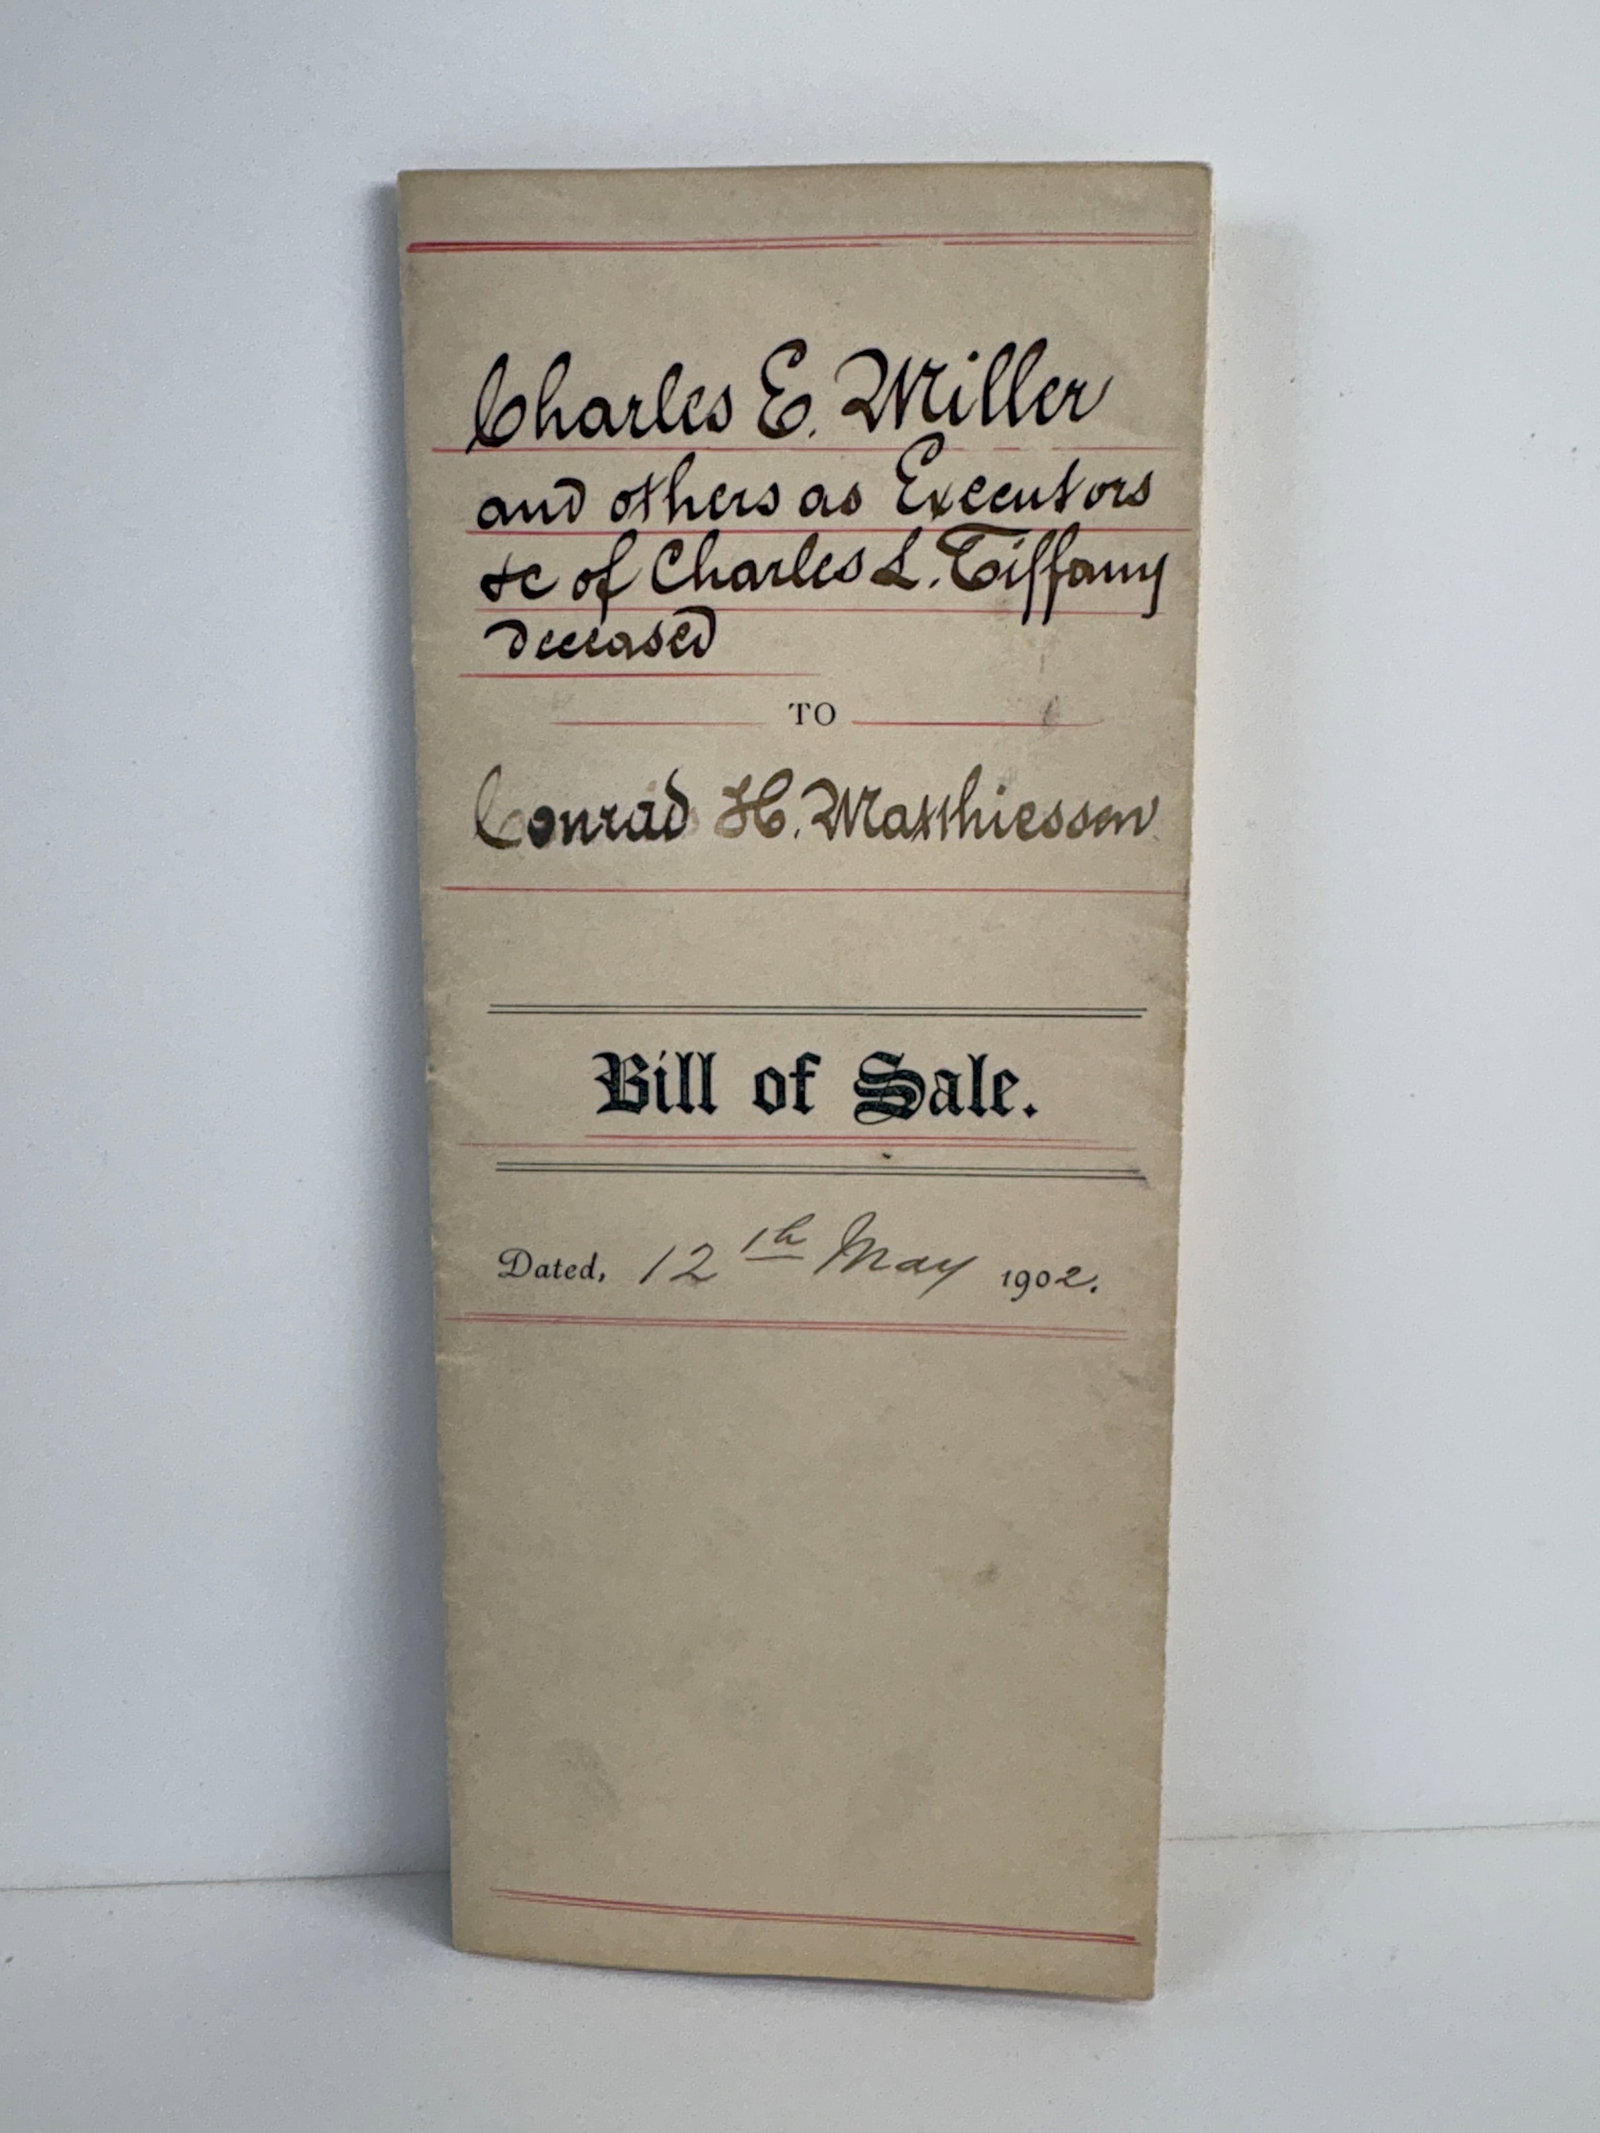 Charles E. Miller
and others as Executors
&c of Charles L. Tiffany
deceased
TO
Conrad H. Matthiessen
Bill of Sale.
Dated, 12th May 1902.